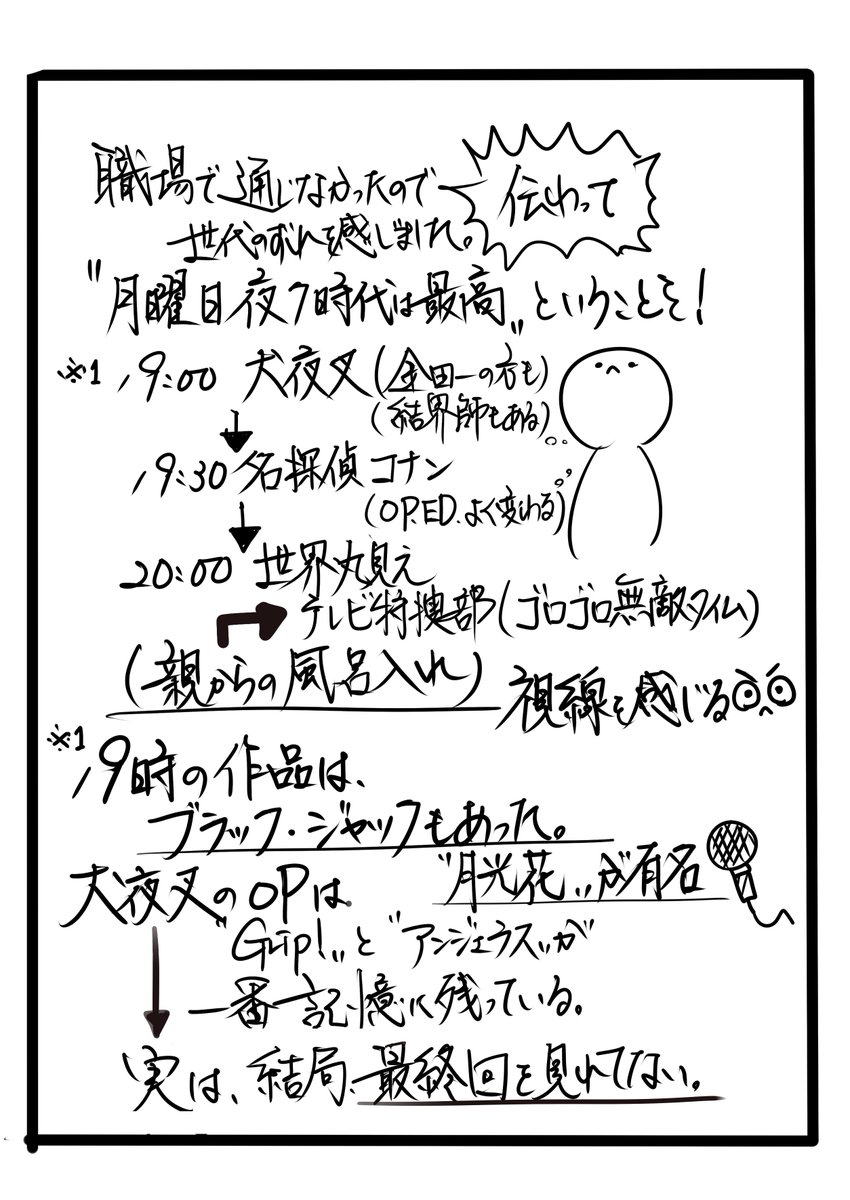 職場で通じなかったので
世代のずれを感じました。
伝わって
"月曜日夜7時代は最高"ということを!
※1 19:00 犬夜叉(金田一の方も)
(結界師もある)
19:30 名探偵コナン
(OP.ED.よく変わる)
20:00 世界丸見え
テレビ特捜部(ゴロゴロ無敵タイム)
(親からの風呂入れ)
視線を感じる
※1
19時の作品は、
ブラック・ジャックもあった。
"月光花"が有名
犬夜叉のOPは
"Grip!"と"アンジェラス"が
一番記憶に残っている。
実は、結局、最終回を見れてない。